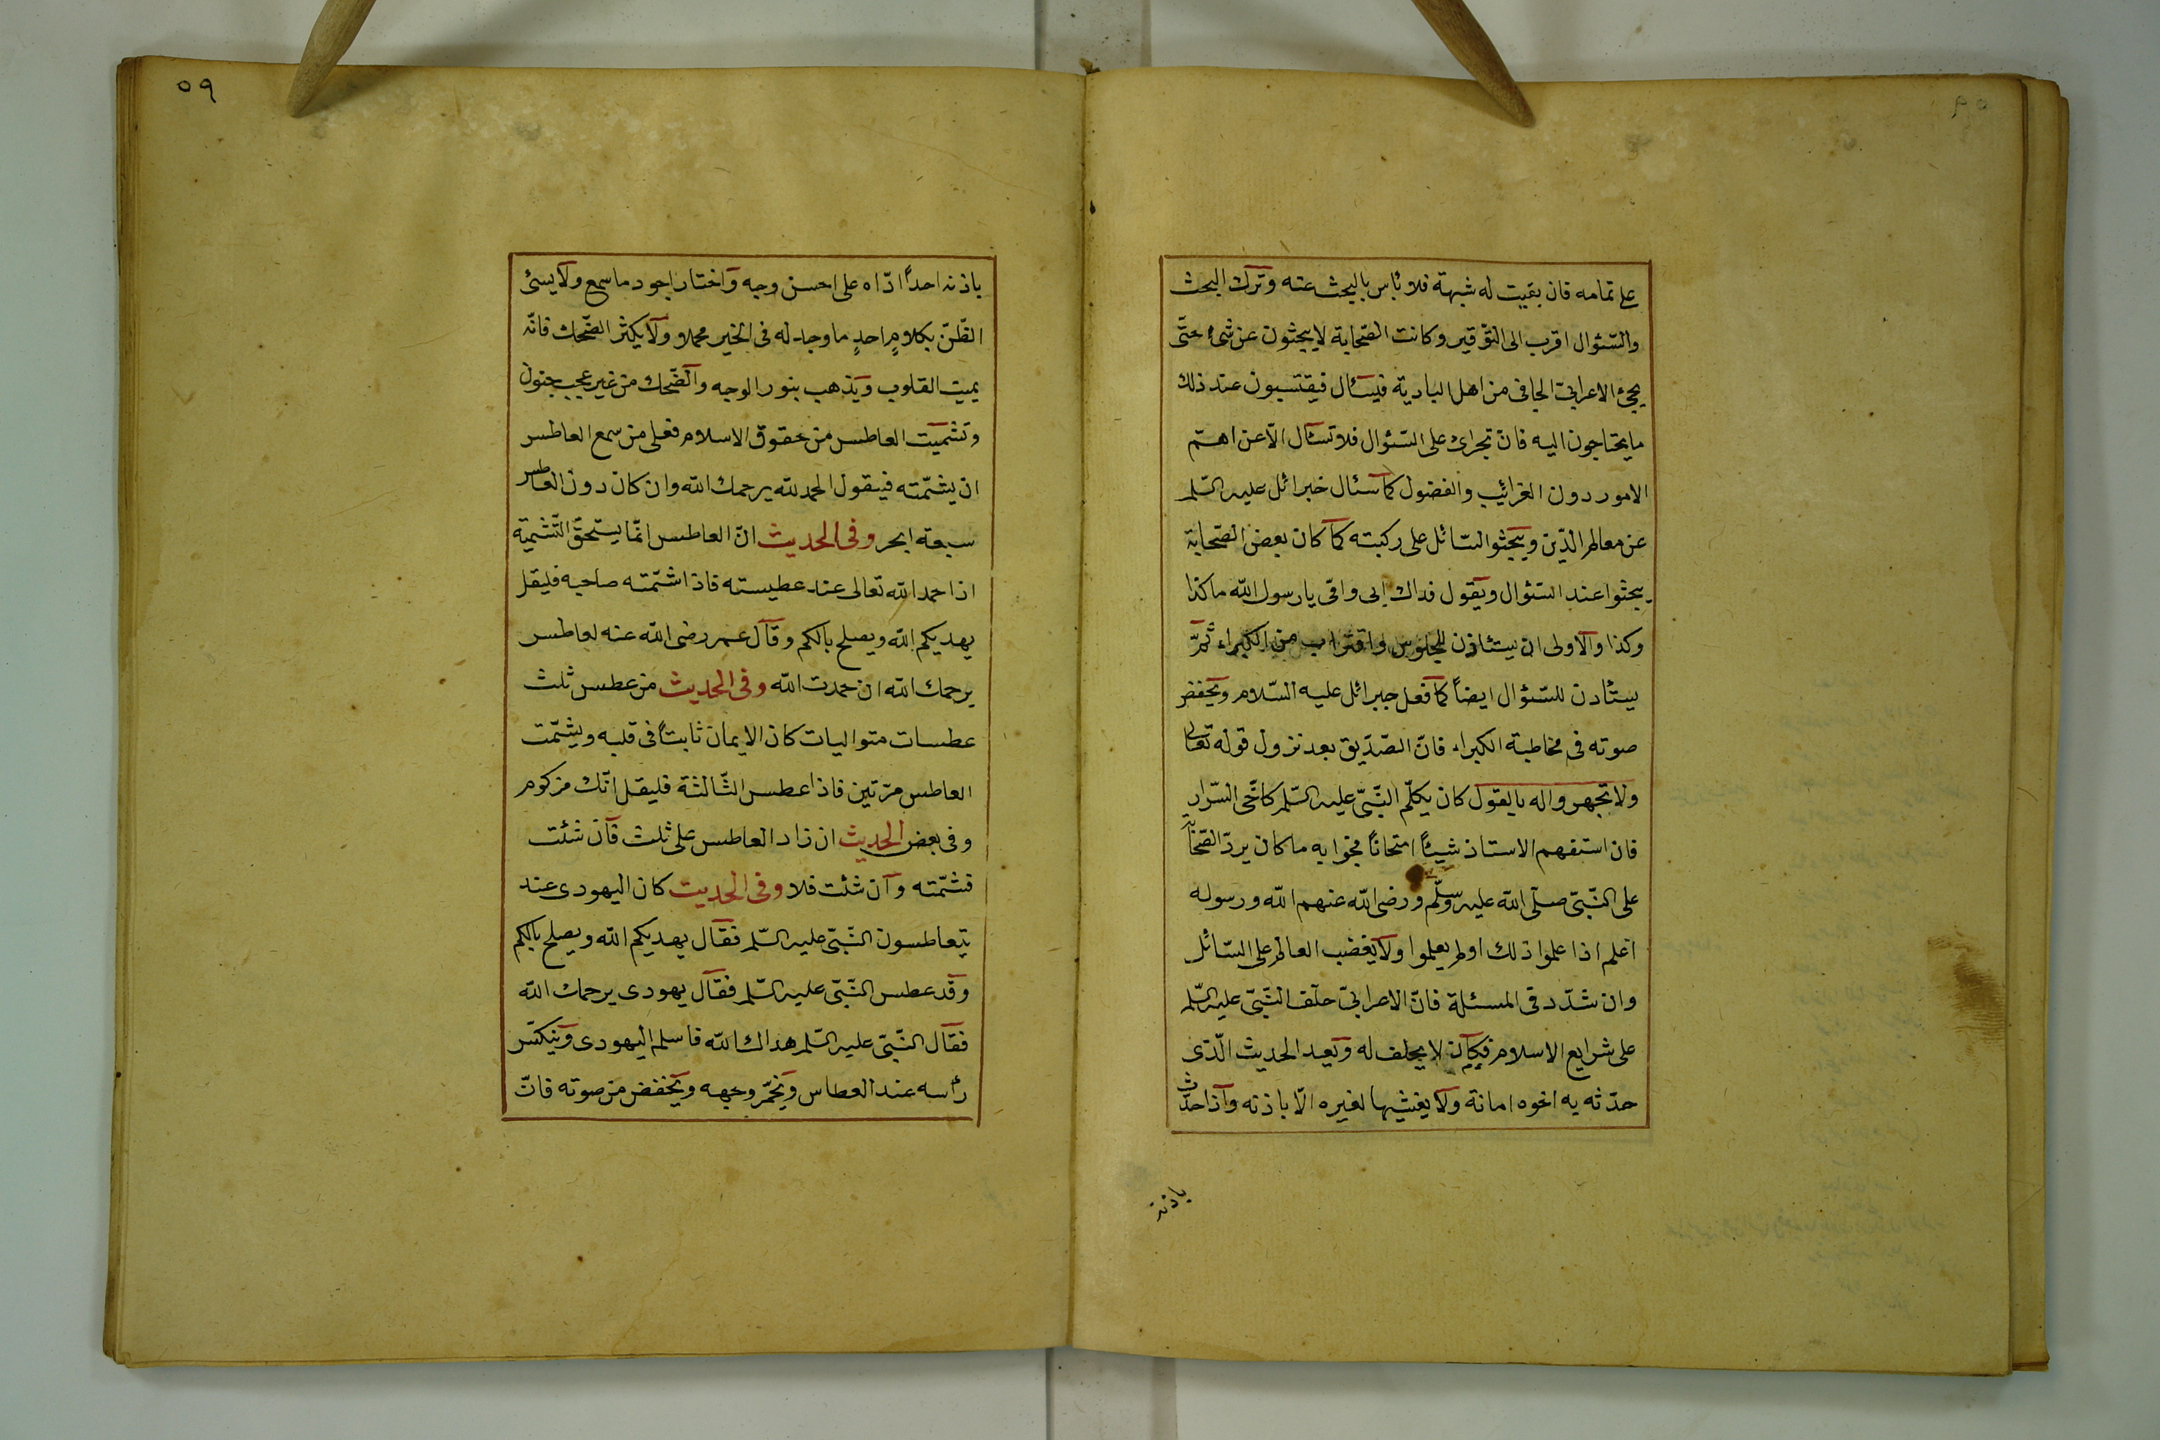 على تمامه فان بقيت له شبهة فلا بأس بالبحث عنه وترك البحث
والسّئوال اقرب الى التّوقير وكانت الصّحابة لا يبحثون عن شئ حتّى
يجئ الاعرابىّ الجافى من اهل البادية فيسئال فيقتبسون عند ذلك
ما يحتاجون اليه فان تجراى على السّئوال فلا تسئال الّا عن اهمّ
الامور دون الغرائب والفضول كما سئال خبرائل عليه السّلم
عن معالم الدّين ويجثو السّائل على ركبته كما كان بعض الصّحابة
يجثوا عند السّئوال ويقول فداك ابى وامّى يا رسول الله ما كذا
وكذا والاولى ان يستئاذن للجلوس واقتراب من الكبراء ثمّ
يستئاذن للسّئوال ايضاً كما فعل جبرائل عليه السّلام ويخفض
صوته فى مخاطبة الكبراء فانّ الصّدّيق بعد نزول قوله تعالى
ولا تجهروا له بالقول كان يكلّم النّبىّ عليه السّلم كاخى السّرار
فان استفهم الاستاذ شيئاً امتحاناً فجوابه ما كان يردّ الصّحابة
على النّبىّ صلّى الله عليه وسلّم ورضى الله عنهم الله ورسوله
اعلم اذا علموا ذلك اولم يعلموا ولا يغضب العالم على السّائل
وان شدّد فى المسئلة فانّ الاعرابىّ حلّف النّبىّ عليه السّلم
على شرايع الاسلام فكان لا يحلف له ويعيد الحديث الّذى
حدّثه به اخوه امانة ولا يفشيها لغيره الّا باذنه واذا حدّث
باذنه
٥٩
باذنه احداً ادّاه على احسن وجه واختار اجود ما سمع ولا يسئ
الظّنّ بكلامٍ احدٍ ما وجد له فى الخير محملا ولا يكثر الضّحك فانّه
يميت القلوب ويذهب بنور الوجه والضّحك من غير عجب جنون
وتشميت العاطس من حقوق الاسلام فعلى من سمع العاطس
ان يشمّته فيقول الحمد لله يرحمك الله وان كان دون العاطس
سبعة ابحر وفى الحديث انّ العاطس انّما يستحقّ التّشمية
اذا حمد الله تعالى عند عطيسته فاذا شمّته صاحبه فليقل
يهديكم الله ويصلح بالكم وقال عمر رضى الله عنه لعاطس
يرحمك الله ان حمدت الله وفى الحديث من عطس ثلث
عطسات متواليات كان الايمان ثابتاً فى قلبه ويشمّت
العاطس مرّتين فاذا عطس الثّالثة فليقل انّك مزكوم
وفى بعض الحديث ان زاد العاطس على ثلث فان شئت
فشمّته وان شئت فلا وفى الحديث كان اليهودى عند
يتعاطسون النّبىّ عليه السّلم فقال يهديكم الله ويصلح بالكم
وقد عطس النّبىّ عليه السّلم فقال يهودى يرحمك الله
فقال النّبىّ عليه السّلم هداك الله فاسلم اليهودى وينكسّر
رأسه عند العطاس ويخمّر وجهه ويخفض من صوته فانّ